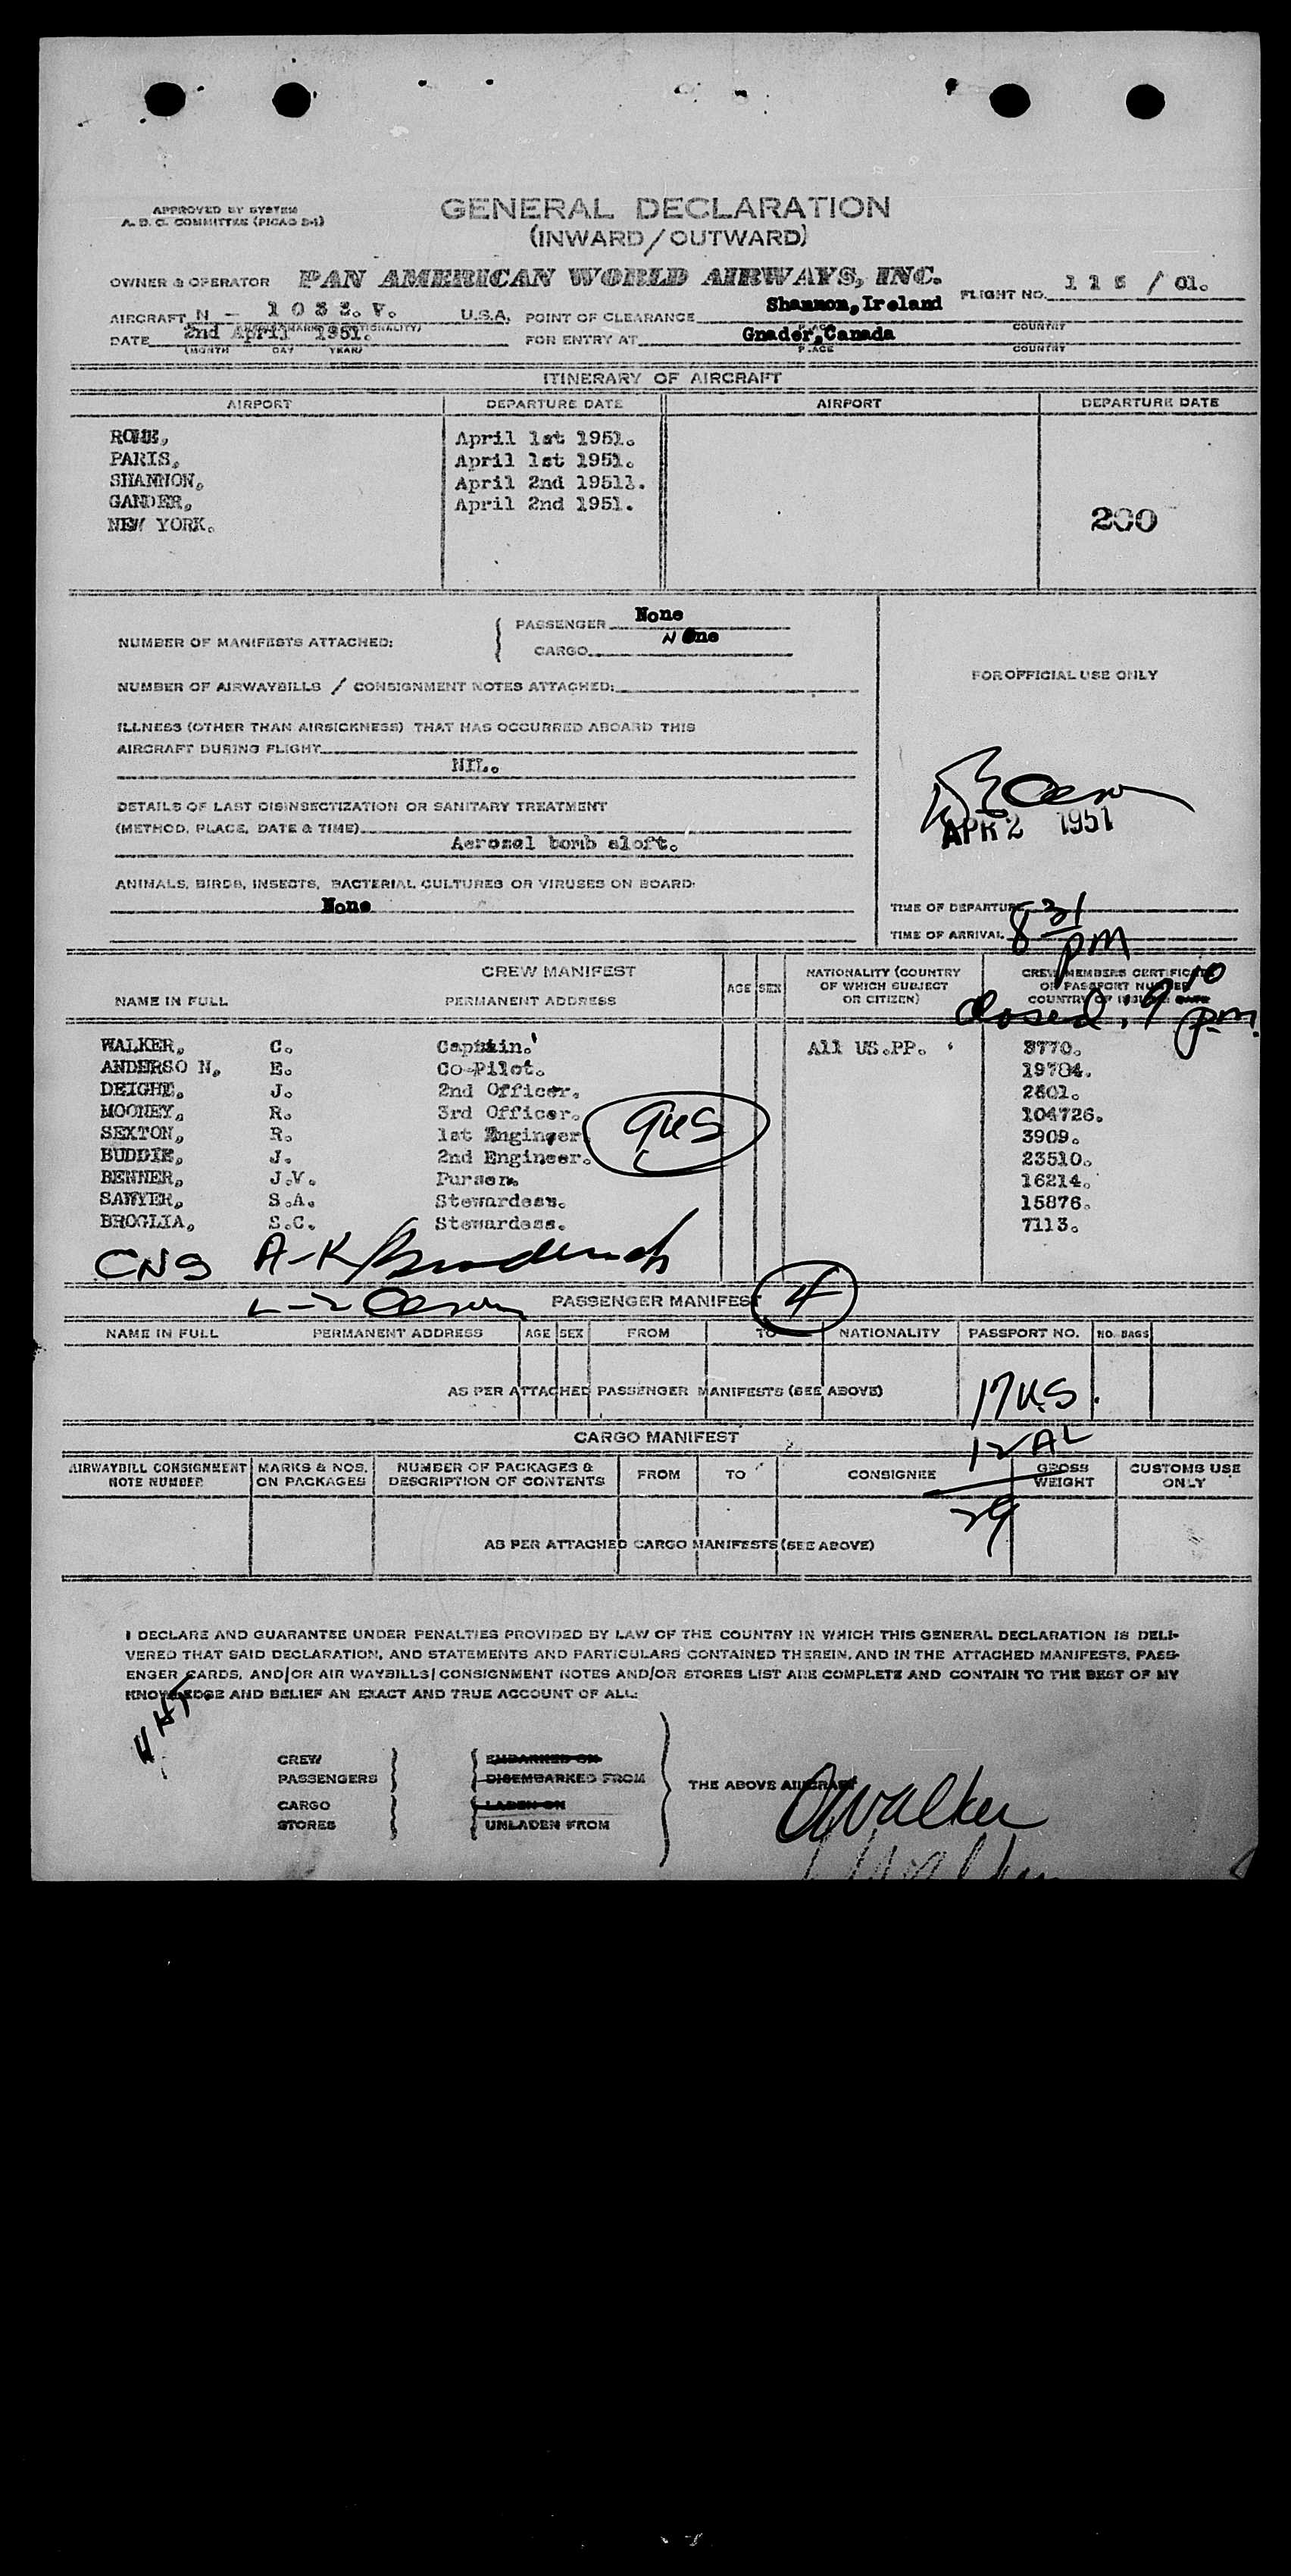 APPROVED BY SYSTEM
A. D. C. COMMITTEE (PICAO 2-1)
GENERAL DECLARATION
(INWARD/OUTWARD)
OWNER & OPERATOR PAN AMERICAN WORLD AIRWAYS, INC. FLIGHT NO. / 01.
AIRCRAFT N - U.S.A. POINT OF CLEARANCE Shannon, Ireland
PLACE COUNTRY
DATE 2nd April 1951. FOR ENTRY AT Gnader, Canada
(MONTH DAY YEAR) PLACE COUNTRY
ITINERARY OF AIRCRAFT
AIRPORT DEPARTURE DATE AIRPORT DEPARTURE DATE
ROME, April 1st 1951.
PARIS, April 1st 1951.
SHANNON, April 2nd 19511.
GANDER, April 2nd 1951.
NEW YORK.
200
NUMBER OF MANIFESTS ATTACHED: { PASSENGER None
CARGO None
NUMBER OF AIRWAYBILLS / CONSIGNMENT NOTES ATTACHED:
FOR OFFICIAL USE ONLY
ILLNESS (OTHER THAN AIRSICKNESS) THAT HAS OCCURRED ABOARD THIS
AIRCRAFT DURING FLIGHT
NIL.
DETAILS OF LAST DISINSECTIZATION OR SANITARY TREATMENT
(METHOD, PLACE, DATE & TIME)
Aerosel bomb aloft.
APR 2 1951
ANIMALS, BIRDS, INSECTS, BACTERIAL CULTURES OR VIRUSES ON BOARD:
None
TIME OF DEPARTURE
TIME OF ARRIVAL 8 31 pm
CREW MANIFEST
NAME IN FULL PERMANENT ADDRESS AGE SEX NATIONALITY (COUNTRY OF WHICH SUBJECT OR CITIZEN) CREW MEMBERS CERTIFICATE OR PASSPORT NUMBER
closed: 9 10 pm
WALKER, C. Captain. All US.PP. 3770.
ANDERSO N, E. Co-Pilot. 19784.
DEIGHT, J. 2nd Officer. 2801.
MOONEY, R. 3rd Officer. 104726.
SEXTON, R. 1st Engineer. 3909.
BUDDIE, J. 2nd Engineer. 23510.
BENNER, J.V. Purser. 16214.
SAWYER, S.A. Stewardess. 15876.
BROGLIA, S.C. Stewardess. 7113.
9US
CNS A-K
L-Z
PASSENGER MANIFEST 4
NAME IN FULL PERMANENT ADDRESS AGE SEX FROM TO NATIONALITY PASSPORT NO. NO. BAGS
AS PER ATTACHED PASSENGER MANIFESTS (SEE ABOVE)
17 U.S.
12 AL
29
CARGO MANIFEST
AIRWAYBILL CONSIGNMENT NOTE NUMBER MARKS & NOS. ON PACKAGES NUMBER OF PACKAGES & DESCRIPTION OF CONTENTS FROM TO CONSIGNEE GROSS WEIGHT CUSTOMS USE ONLY
AS PER ATTACHED CARGO MANIFESTS (SEE ABOVE)
I DECLARE AND GUARANTEE UNDER PENALTIES PROVIDED BY LAW OF THE COUNTRY IN WHICH THIS GENERAL DECLARATION IS DELI-
VERED THAT SAID DECLARATION, AND STATEMENTS AND PARTICULARS CONTAINED THEREIN, AND IN THE ATTACHED MANIFESTS, PASS-
ENGER CARDS, AND/OR AIR WAYBILLS/CONSIGNMENT NOTES AND/OR STORES LIST ARE COMPLETE AND CONTAIN TO THE BEST OF MY
KNOWLEDGE AND BELIEF AN EXACT AND TRUE ACCOUNT OF ALL:
CREW EMBARKED ON
PASSENGERS DISEMBARKED FROM THE ABOVE AIRCRAFT
CARGO LADEN ON
STORES UNLADEN FROM
CWalker